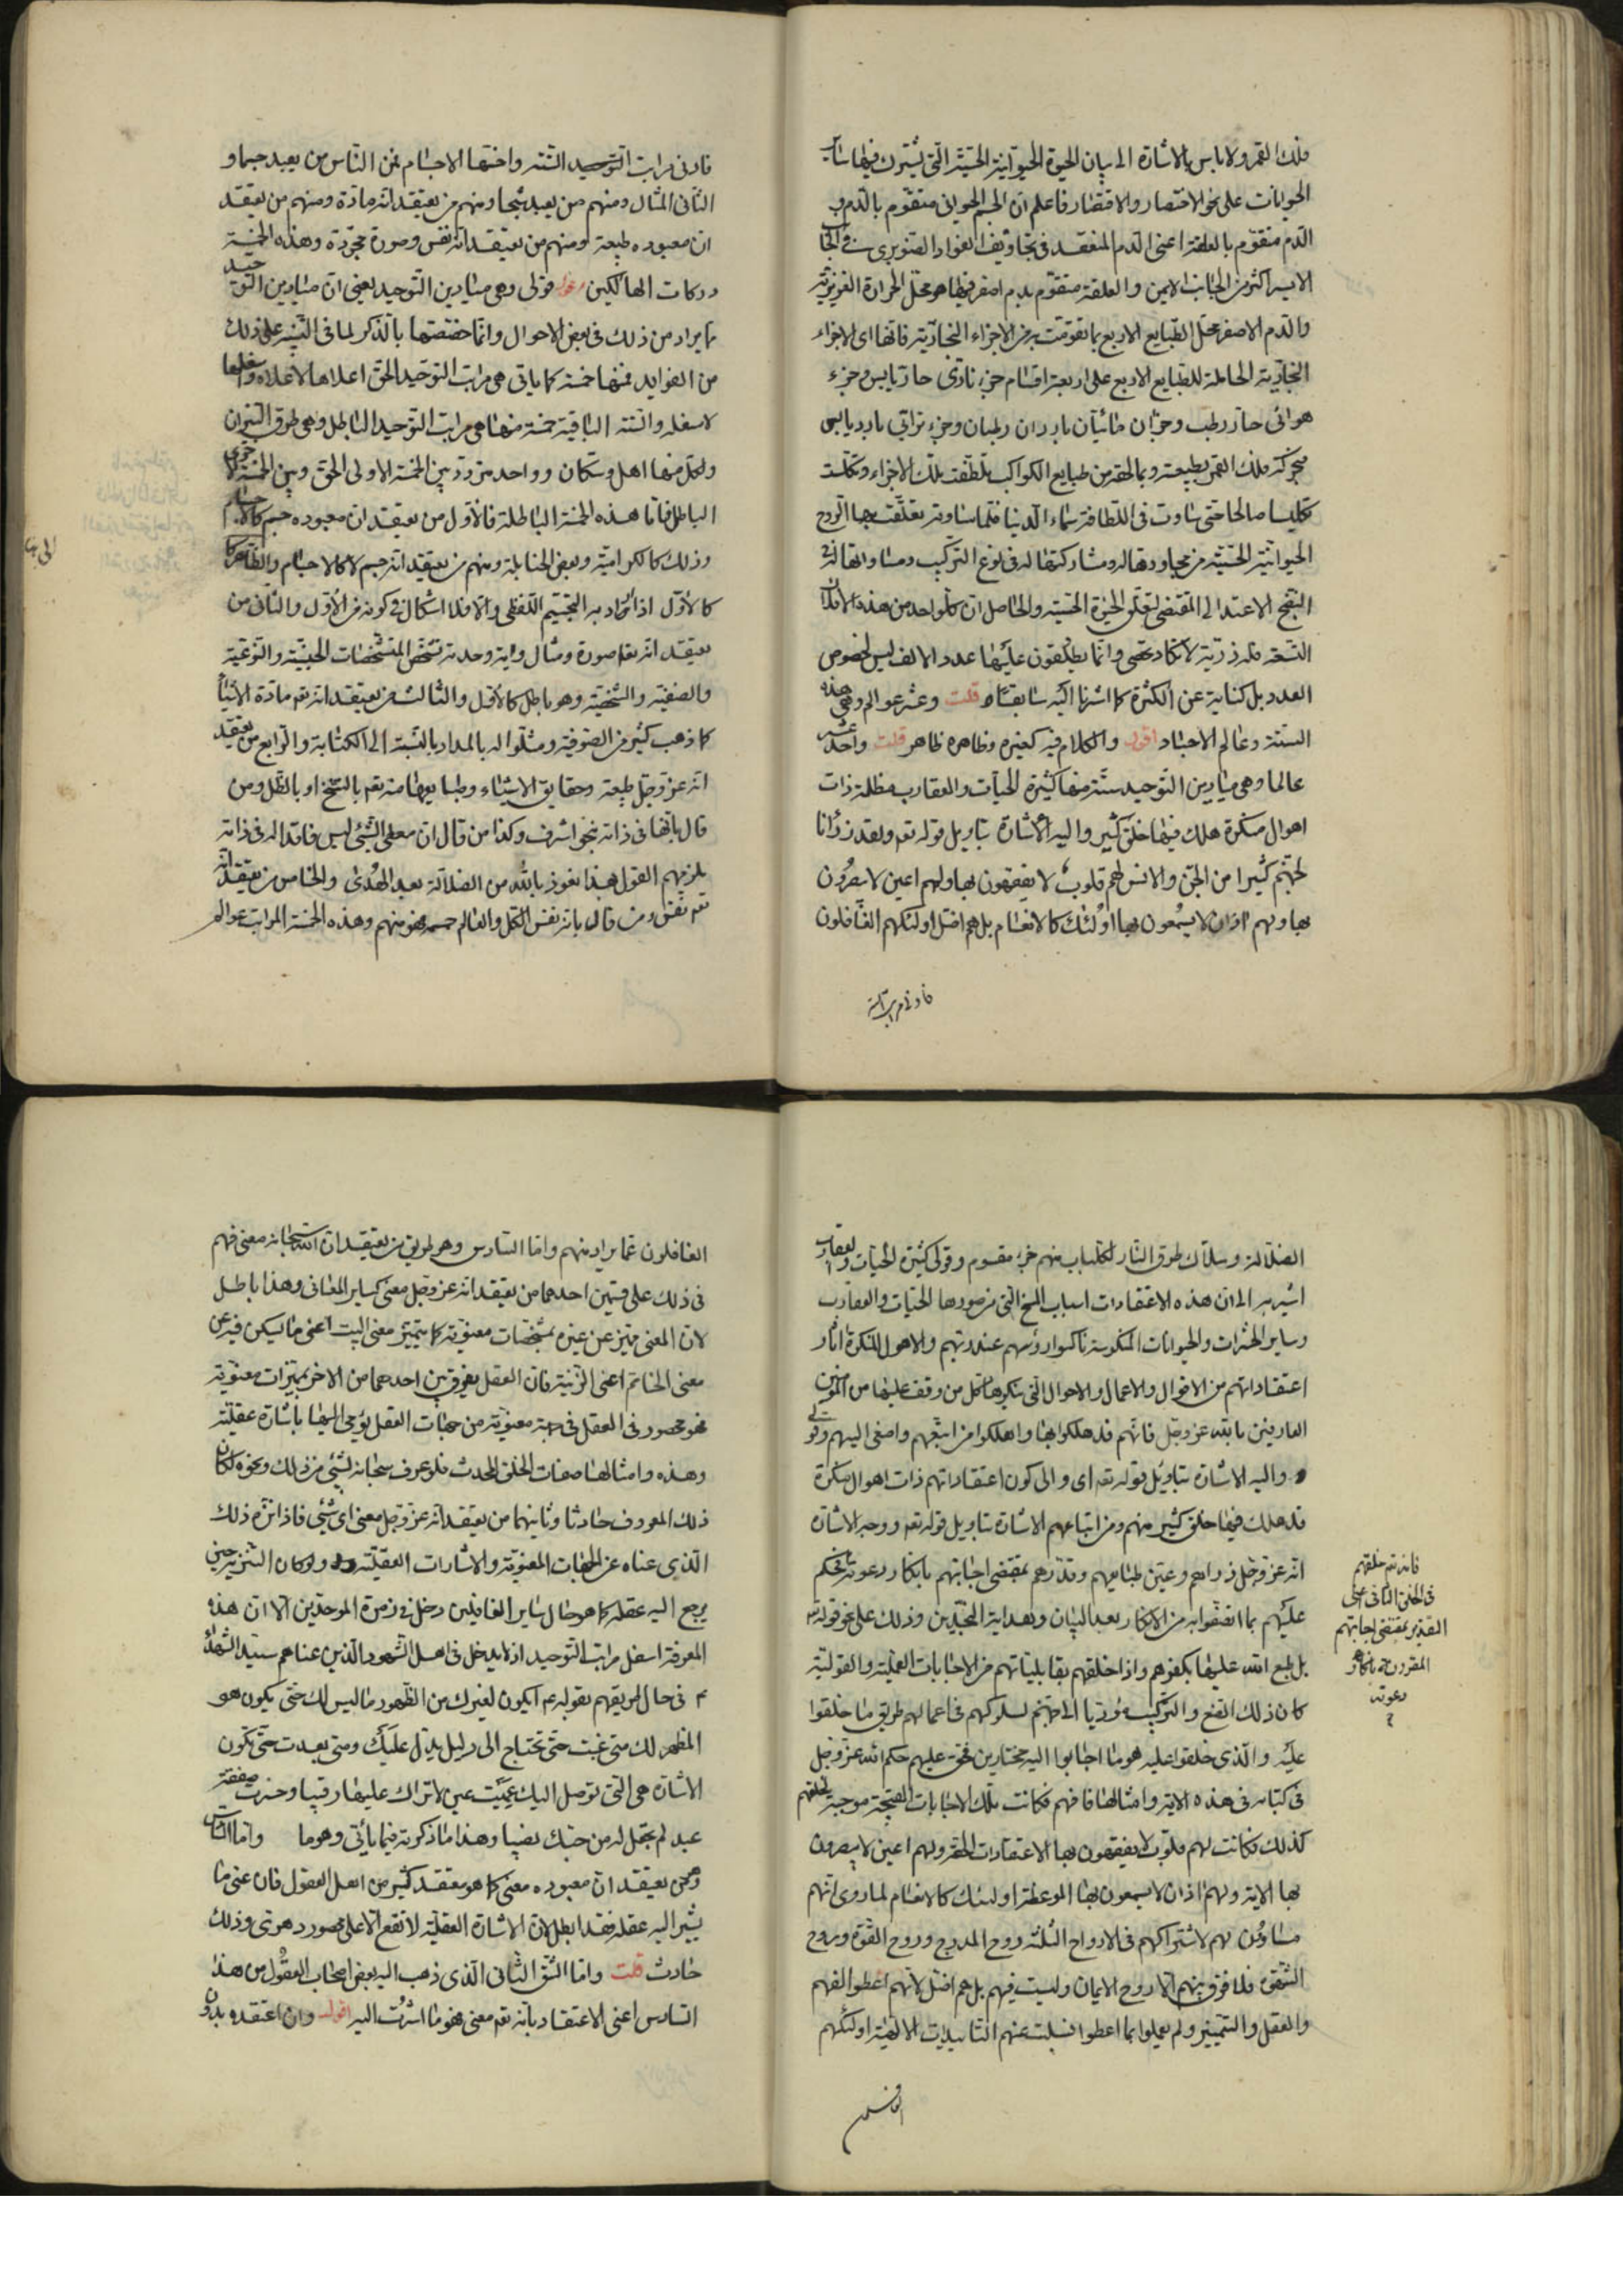 فلك القمر ولا باس بالاشارة الى بيان الحيوة الحيوانية الحسّيّة الّتى يشترك فيها ساير
الحيوانات على نحو الاختصار والاقتصار فاعلم انّ الجسم الحيوانى متقوّم بالدّم و
الدّم متقوّم بالعلقة اعنى الدم المنعقد فى تجاويف الفؤاد الصّنوبرى فى الجانب
الايسر اكثر من الجانب الايمن والعلقة متقوّم بدم اصفر فيها هو محلّ الحرارة الغريزيّة
والدّم الاصفر محلّ الطّبايع الاربع بما تقوّمت به من الاجزاء البخاريّة فانّها اى الاجزاء
البخاريّة الحاملة للطبايع الاربع على اربعة اقسام جزء نارىّ حارّ يابس وجزء
هوائى حارّ رطب وجزءان مائيّان باردان رطبان وجزء ترابّى بارد يابس
فبحركة فلك القمر بطبيعته وبما لحقه من طبايع الكواكب تلطّفت تلك الاجزاء وتكلّست
تكليسا صالحا حتى ساوت فى اللّطافة سماء الدّنيا فلمّا ساوته تعلّقت بها الرّوح
الحيوانيّة الحسّيّة من مجاورتها له ومشاركتها له فى نوع التركيب ومساواتها له فى
النّضج الاعتدالى المقتضى لتعلّق الحيوة الحسّيّة والحاصل ان كلّ واحد من هذه الافلاك
التّسعة فله ذرّيّة لا تكاد تحصى وانّما يطلقون عليها عدد الالف ليس لخصوص
العدد بل كناية عن الكثرة كما اشرنا اليه سابقا قلت وعشر عوالم وهى هذه
الستّة وعالم الاجساد اقول والكلام فيه كغيره وظاهره ظاهر قلت واحد عشر
عالما وهى ميادين التّوحيد ستّة منها كثيرة الحيّات والعقارب مظلمة ذات
اهوال منكرة هلك فيها خلق كثير واليه الاشارة بتاويل قوله تعم ولقد ذرأنا
لجهنّم كثيرا من الجنّ والانس لهم قلوبٌ لا يفقهون بها ولهم اعين لا يبصرُون
بها ولهم اذان لا يسمعون بها اولئك كالانعام بل هم اضلّ اولئك هم الغافلون
فادنى مراتب التّوحيد الستّة واخسّها الاجسام فمن النّاس من يعبد جسما و
الثّانى المثال ومنهم من يعبد شبحا ومنهم من يعتقد انّه مادّة ومنهم من يعتقد
ان معبوده طبيعة ومنهم من يعتقد انّه نفس وصورة مجرّدة وهذه الخمسة
دركات الهالكين اقول قولى وهى ميادين التّوحيد يعنى انّ ميادين التّوحيد
ما يراد من ذلك فى بعض الاحوال وانّما خصّصتها بالذّكر لما فى التّنبيه على ذلك
من الفوايد فمنها خمسة كما ياتى هى مراتب التوحيد الحقّ اعلاها لاعلاه واسفلها
لاسفله والستّة الباقية خمسة منها هى مراتب التوحيد الباطل وهى طرق النّيران
ولكلّ منها اهل وسكّان وواحد متردّد بين الخمسة الاولى الحقّ وبين الخمسة الاخرى
الباطل فامّا هذه الخمسة الباطلة فالاوّل من يعتقد ان معبوده جسم كالاجسام
وذلك كالكراميّة وبعض الحنابلة ومنهم من يعتقد انّه جسم لا كالاجسام والظّاهر انّه
كالاوّل اذا اراد به التجسيم اللّفظى والّا فلا اشكال فى كونه من الاوّل والثانى من
يعتقد انّه تعم صورة ومثال وانّه وحدته تشخّص المتشخّصات الجنسيّة والنّوعيّة
والصنفيّة والشّخصيّة وهو باطل كالاوّل والثالث من يعتقد انّه تعم مادّة الاشياء
كما ذهب كثير من الصّوفيّة ومثّلوا له بالمداد بالنّسبة الى الكتابة والرّابع من يعتقد
انّه عزّ وجلّ طبيعة وحقايق الاشياء وطبايعها منه تعم بالسّنخ او بالظّلّ ومن
قال بانّها فى ذاته بنحو اشرف وكذا من قال انّ معطى الشّئ ليس فاقدا له فى ذاته
يلزمهم القول بهذا نعوذ بالله من الضلالة بعد الهُدى والخامس من يعتقد انّه
تعم نفس ومن قال بانّه نفس الكلّ والعالم جسمه فهو منهم وهذه الخمسة المراتب عوالم
الضلالة وسلّاك طرق النّار لكلّ باب منهم جزء مقسوم وقولى كثيرة الحيّات والعقارب
اشير به الى ان هذه الاعتقادات اسباب المسخ الّتى من صورها الحيّات والعقارب
وساير الحشرات والحيوانات المنكوسة ناكسوا رؤسهم عند ربّهم والاهوال المنكرة اثار
اعتقاداتهم من الاقوال والاعمال والاحوال الّتى ينكرها كلّ من وقف عليها من المؤمنين
العارفين بالله عزّ وجلّ فانّهم قد هلكوا بها واهلكوا من اتّبعهم واصغى اليهم وقولى
واليه الاشارة بتاويل قوله تعم اى والى كون اعتقاداتهم ذات اهوال منكرة
قد هلك فيها خلق كثير منهم ومن اتباعهم الاشارة بتاويل قوله تعم ووجه الاشارة
انّه عزّ وجلّ ذراهم وعيّن طبايعهم وقدّرهم بمقتضى اجابتهم بانكار دعوته فحكم
عليهم بما اتصفوا به من الانكار بعد البيان وبعد اية النّجدين وذلك على نحو قوله تعم
بل طبع الله عليها بكفرهم واذا خلقهم بقابليّاتهم من الاجابات العمليّة والقوليّة
كان ذلك الصّنع والتركيب مؤدّيا الى جهنّم لسلوكهم فى اعمالهم طريق ما خلقوا
عليه والّذى خلقوا عليه هو ما اجابوا اليه مختارين فحق عليهم حكم الله عزّ وجلّ
فى كتابه فى هذه الاية وامثالها فافهم فكانت تلك الاجابات القبيحة موجبة لخلقهم
كذلك فكانت لهم قلوب لا يفقهون بها الاعتقادات الحقّة ولهم اعين لا يبصرون
بها الاية ولهم اذان لا يسمعون بها الموعظة اولئك كالانعام لما روى انّهم
مساوُون لهم لاشتراكهم فى الارواح الثلثة روح المدرج وروح القوّة وروح
الشّهوة فلا فرق بينهم الّا روح الايمان وليست فيهم بل هم اضلّ لانّهم اعطوا الفهم
والعقل والتّمييز ولم يعملوا بما اعطوا فسلبت عنهم التّاييدات الالهيّة اولئك هم
فانه تعم خلقهم
فى الخلق الثانى اعنى
التقدير بمقتضى اجابتهم
المقرونة بانكار
دعوته
الغافلون عمّا يراد منهم وامّا السّادس وهو طريق من يعتقد انّ الله سبحانه معنى فهم
فى ذلك على قسمين احدهما من يعتقد انّه عزّ وجلّ معنى كساير المعانى وهذا باطل
لانّ المعنى متميّز عن غيره بمشخّصات معنويّة كما يتميّز معنى البيت اعنى ما يسكن فيه عن
معنى الخاتم اعنى الزّينة فانّ العقل يفرق بين احدهما من الاخر بمميّزات معنويّة
فهو محصور فى العقل فى جهة معنويّة من جهات العقل يؤمى اليها باشارة عقليّة
وهذه وامثالها صفات الخلق المحدث فلو عرف سبحانه بشئ من ذلك ونحوه لكان
ذلك المعروف حادثا وثانيهما من يعتقد انّه عزّ وجلّ معنى اى شئ فاذا نزّه ذلك
الّذى عناه عن الجهات المعنويّة والاشارات العقليّة ولو كان التنزيه حين
يرجع اليه عقله كما هو حال ساير الغافلين دخل فى زمرة الموحّدين الّا انّ هذه
المعرفة اسفل مراتب التّوحيد اذ لا يدخل فى اهل الشّهود الّذين عناهم سيّد الشهداء
ع فى حال طريقهم بقوله عم ايكون لغيرك من الظّهور ما ليس لك حتّى يكون هو
المظهر لك متى غبت حتّى تحتاج الى دليل يدلّ عليك ومتى بعدت حتّى تكون
الاشارة هى الّتى توصل اليك عميت عين لا تراك عليها رقيبا وخسرت صفقة
عبد لم تجعل له من حبّك نصيبا وهذا ما ذكرته فيما يأتى وهو ما وامّا السّادس
وهى يعتقد انّ معبوده معنى كما هو معتقد كثير من اهل العقول فان عنى ما
يشير اليه عقله فقد ابطل لانّ الاشارة العقليّة لا تقع الّا على محصور دهرى وذلك
حادث قلت وامّا الشّقّ الثّانى الّذى ذهب اليه بعض اصحاب العقُول من هذا
السّادس اعنى الاعتقاد بانّه تعم معنى فهو ما اشرتُ اليه اقول وان اعتقده بدون